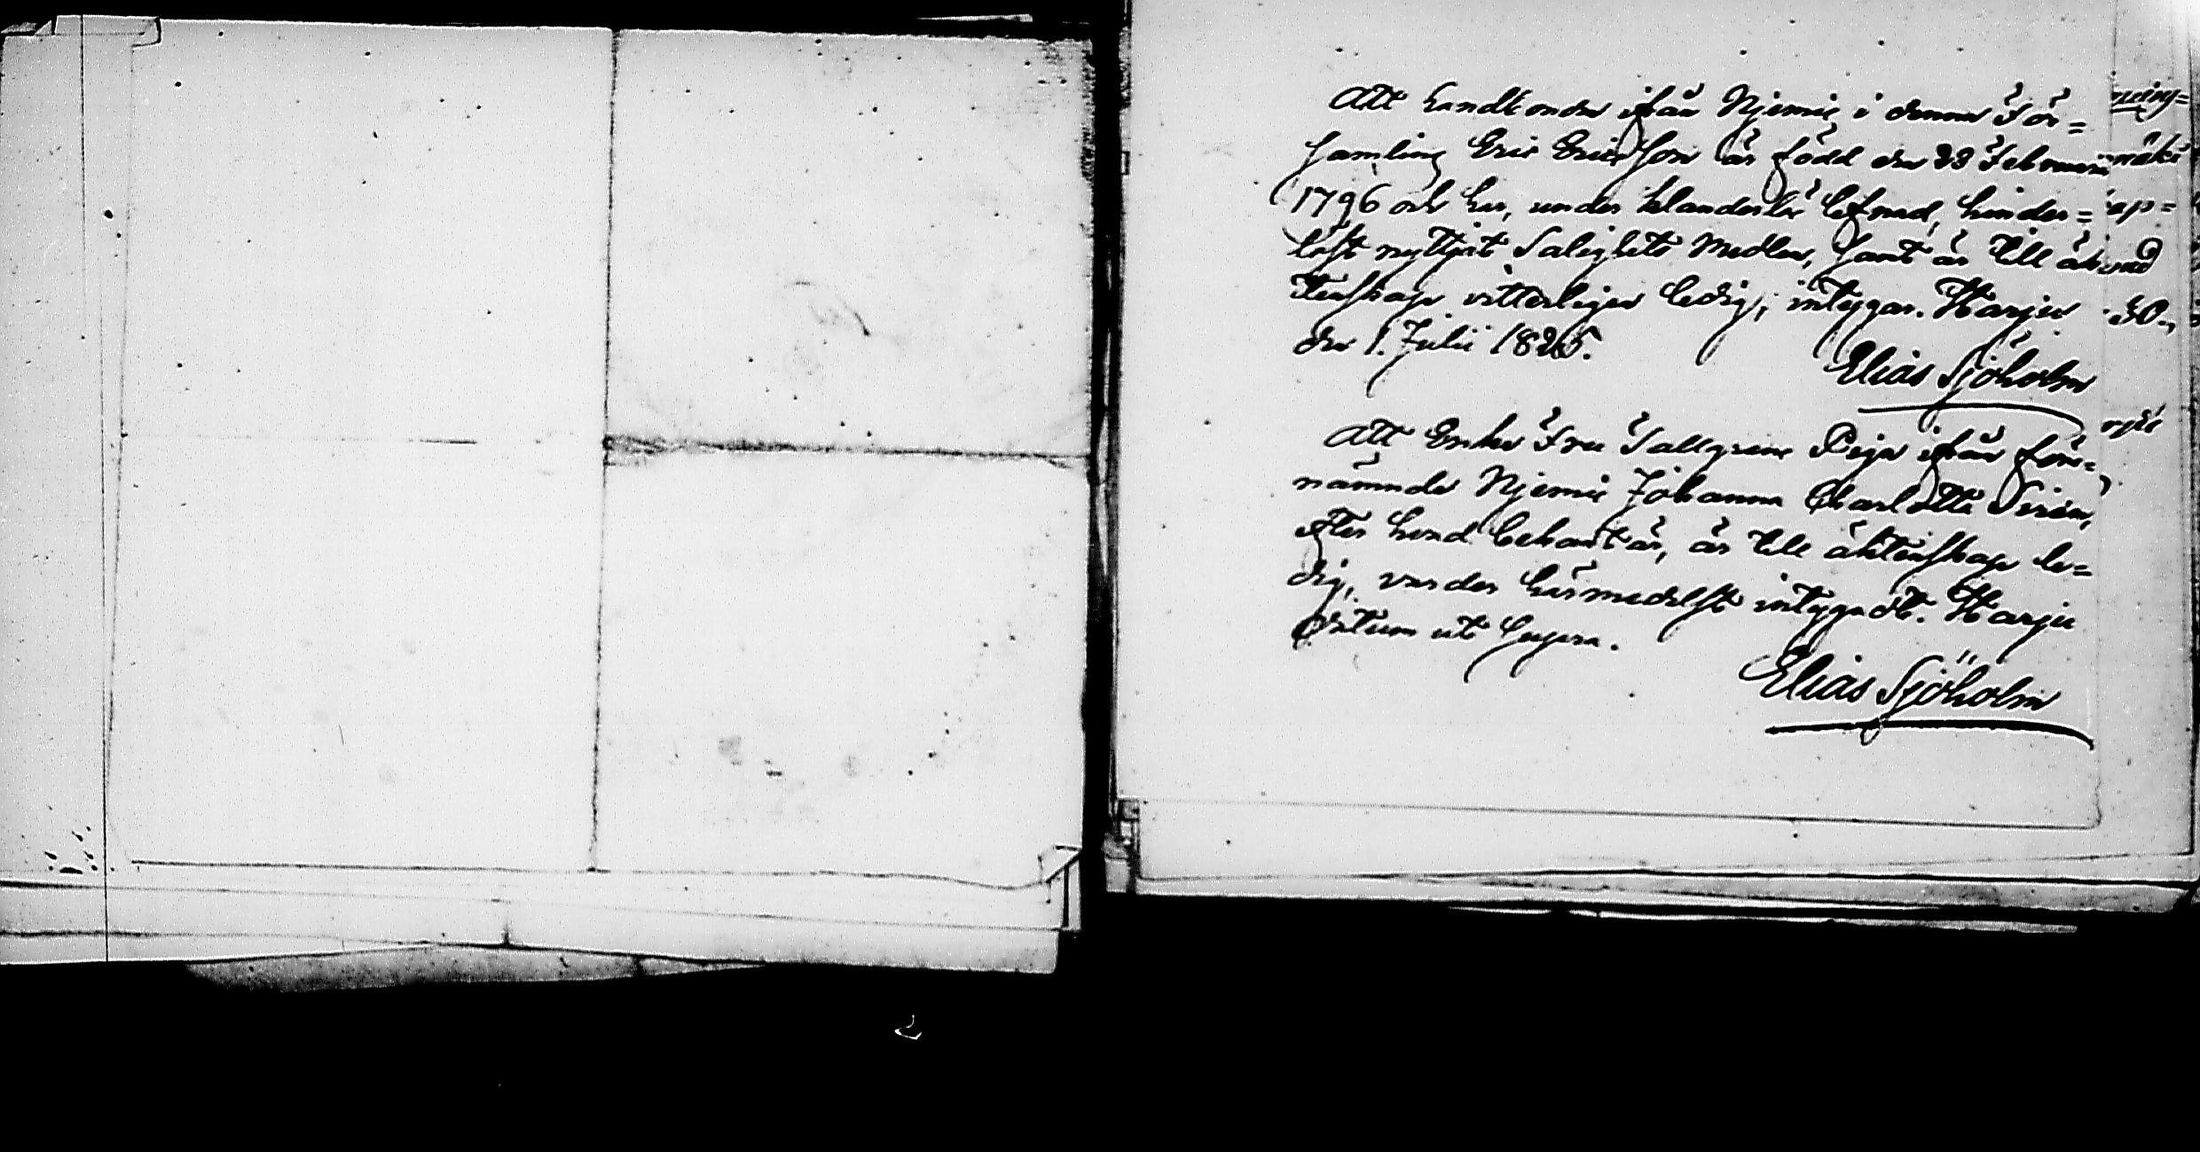 Att Landbonden ifrån Njemis i denna För=
samling Eric Ericsson är född den 23 Februarii
1796 och har, under klanderlös lefnad, hinder=
löst nyttjat Salighets Medlen, samt är till äk
tenskap vitterligen ledig, intygar. Harju
den 1. Julii 1825.
Elias Sjöholm
Att Enke Fru Tallgrens Piga ifrån för=
nämnde Njemis Johanna Charlotta Sirén,
efter hvad bekant är, är till äktenskap le=
dig, varder härmedelst intygadt. Harju
Datum ut supra.
Elias Sjöholm